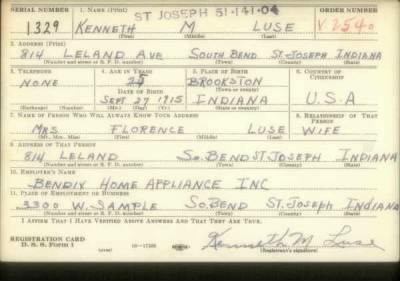 SERIAL NUMBER 1. NAME (Print) ST JOSEPH 51-141-04 ORDER NUMBER
1329 KENNETH M LUSE V2540
(First) (Middle) (Last)
2. ADDRESS (Print)
814 LELAND AVE SOUTH BEND ST. JOSEPH INDIANA
(Number and street or R. F. D. number) (Town) (County) (State)
3. TELEPHONE 4. AGE IN YEARS 5. PLACE OF BIRTH 6. COUNTRY OF CITIZENSHIP
NONE 25 BROOKSTON
DATE OF BIRTH (Town or county)
SEPT 27 1915 INDIANA U.S.A
7. NAME OF PERSON WHO WILL ALWAYS KNOW YOUR ADDRESS 8. RELATIONSHIP OF THAT PERSON
MRS FLORENCE LUSE WIFE
(Mr., Mrs., Miss) (First) (Middle) (Last)
9. ADDRESS OF THAT PERSON
814 LELAND SO. BEND ST. JOSEPH INDIANA
(Number and street or R. F. D. number) (Town) (County) (State)
10. EMPLOYER'S NAME
BENDIX HOME APPLIANCE INC
11. PLACE OF EMPLOYMENT OR BUSINESS
3300 W. SAMPLE SO. BEND ST. JOSEPH INDIANA
(Number and street or R. F. D. number) (Town) (County) (State)
I AFFIRM THAT I HAVE VERIFIED ABOVE ANSWERS AND THAT THEY ARE TRUE.
REGISTRATION CARD
D. S. S. Form 1 Kenneth M Luse
(Registrant's signature)